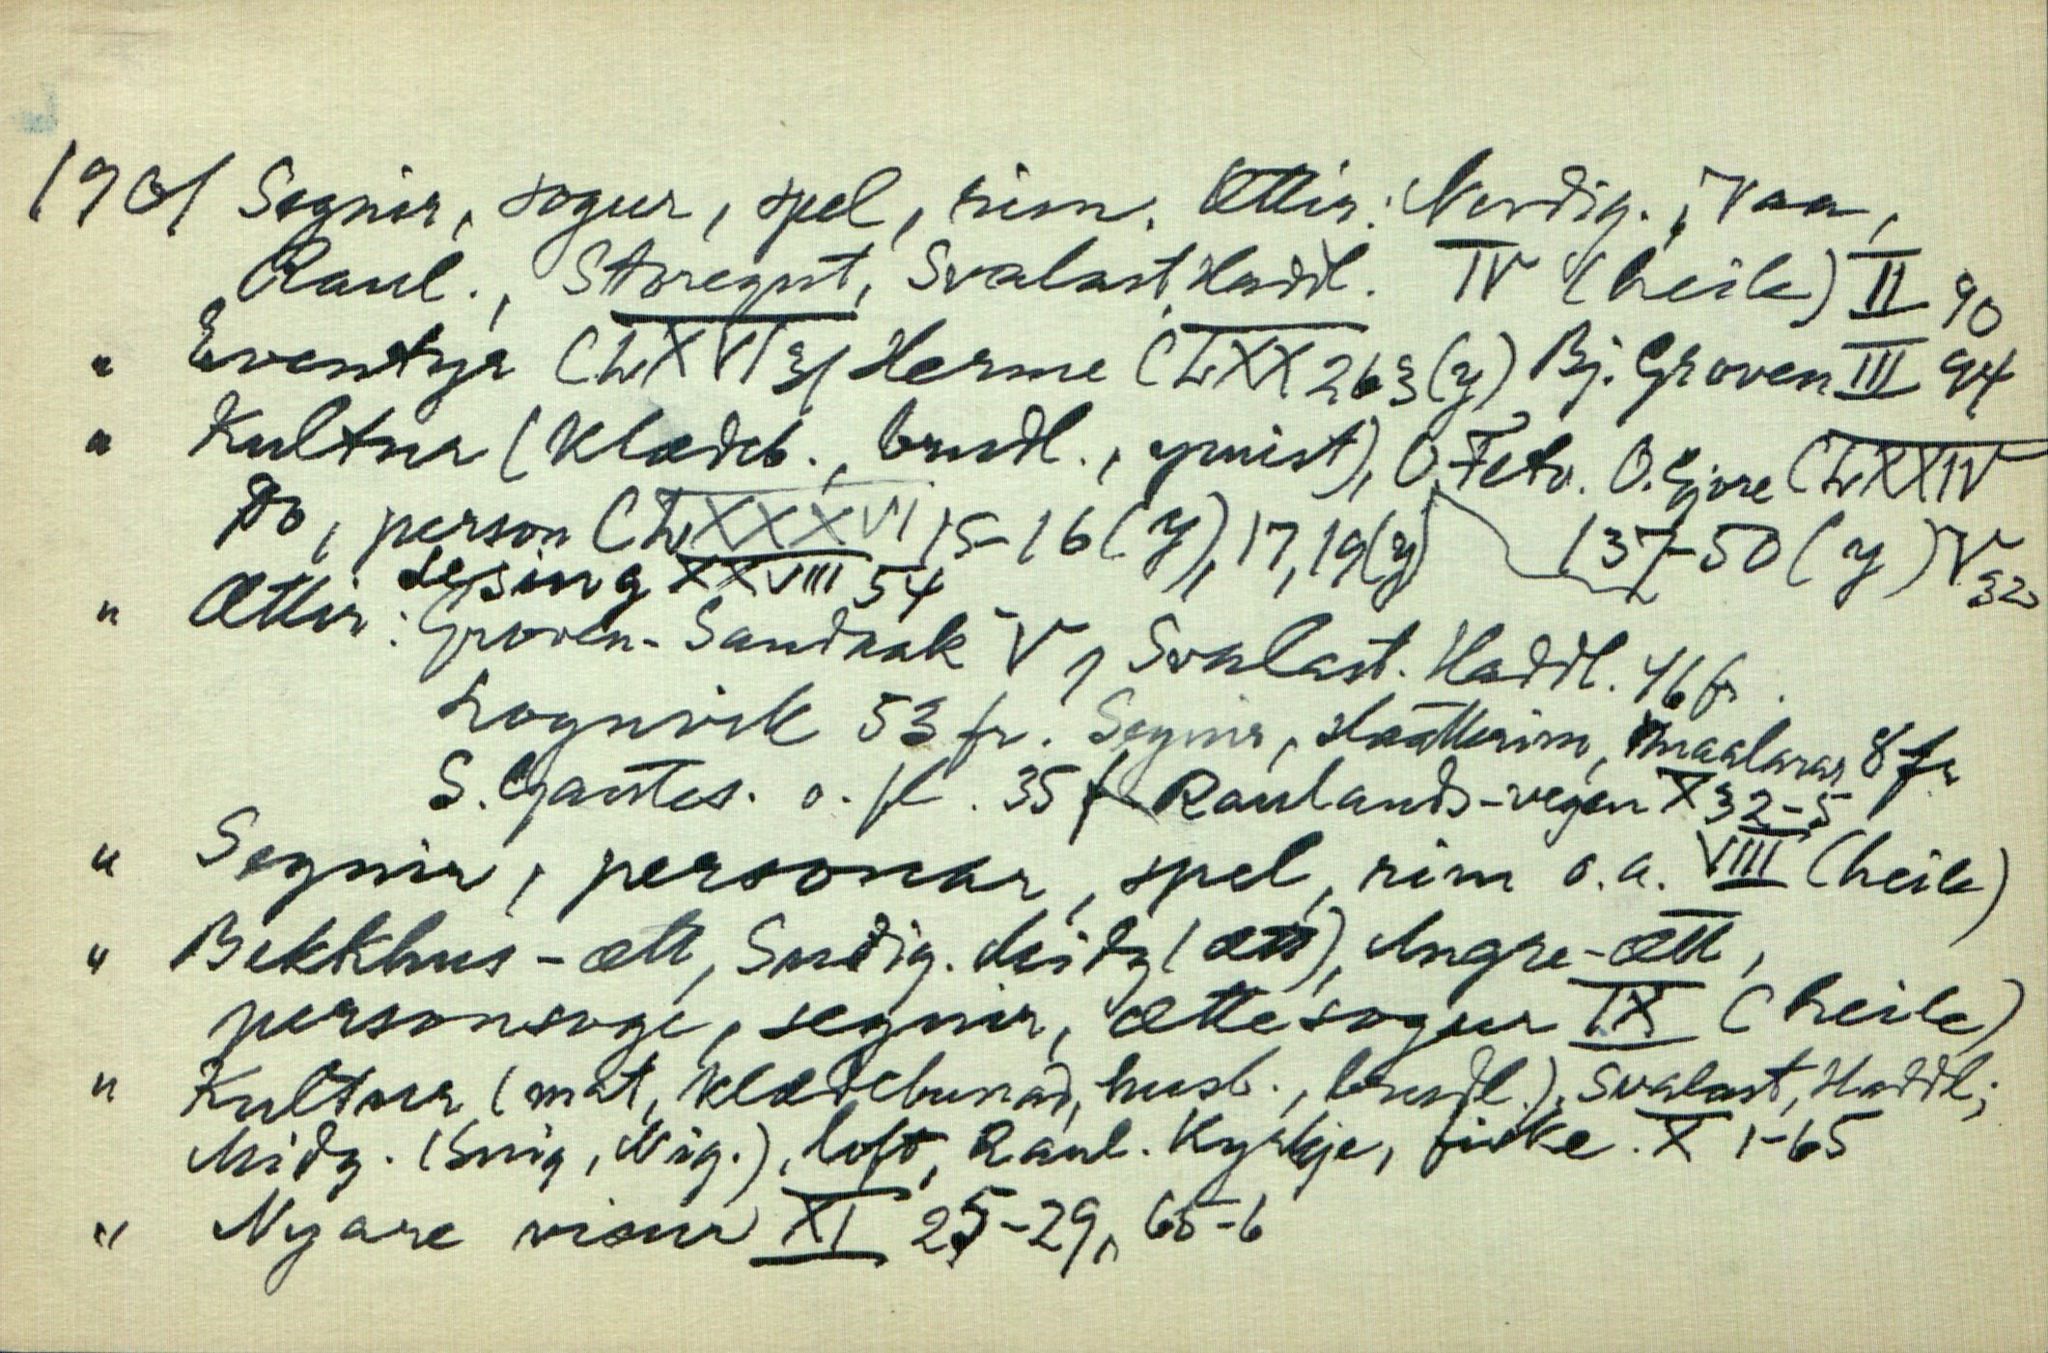 1901 Segnir, sogur, spel, rim. Ættir: Nordig., Vaa,
Raul., Storegut, Svalast, Haddl. IV (heile) II 90
" Eventyr CLXVI 31 Herme CLXX 263 (y) Bj. Groven III 94
" Kultur (klædeb., brudl., ymist), O. Fetv. O. Gjøre CLXXIV
Do, person CLXXXVI 15-16 (y), 17, 19 (y) 137-50 (y) V 32
lesing XXVIII 54
" Ættir: Groven-Sandsak V, Svalast. Haddl. 46 fr.
Lognvik 53 fr. Segnir, slåtterim, maalarar 8 fr
S. Gautes. o. fl. 35 f Raulands-vegen X 32-5
" Segnir, personar, spel, rim o.a. VIII (heile)
" Bekkhus-ætt, Sudig. Midg (ætt), Angre-ætt,
personsoge, segnir, ættesogur IX (heile)
" Kultur (mat, klædebunad, husb., brudl.), Svalast, Haddl;
Midg. (Suig, Nig.), loft, Raul. Kyrkje, fiske. X 1-65
" Nyare visur XI 25-29, 65-6